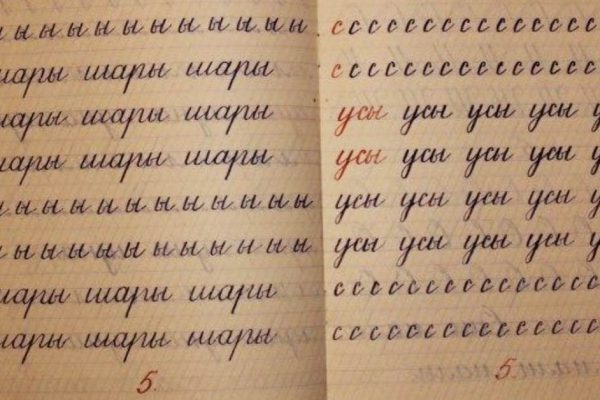 ы ы ы ы ы ы ы ы ы ы ы
шары шары шары
шары шары шары
шары шары шары
ы ы ы ы ы ы ы ы ы ы ы
ы ы ы ы ы ы ы ы ы ы ы
шары шары шары
шары шары шары
5.
с с с с с с с с с с с с с с с с
с с с с с с с с с с с с с с с с
усы усы усы усы у
усы усы усы усы у
усы усы усы усы у
усы усы усы усы у
с с с с с с с с с с с с с с с с
с с с с с с с с с с с с с с с с
5.